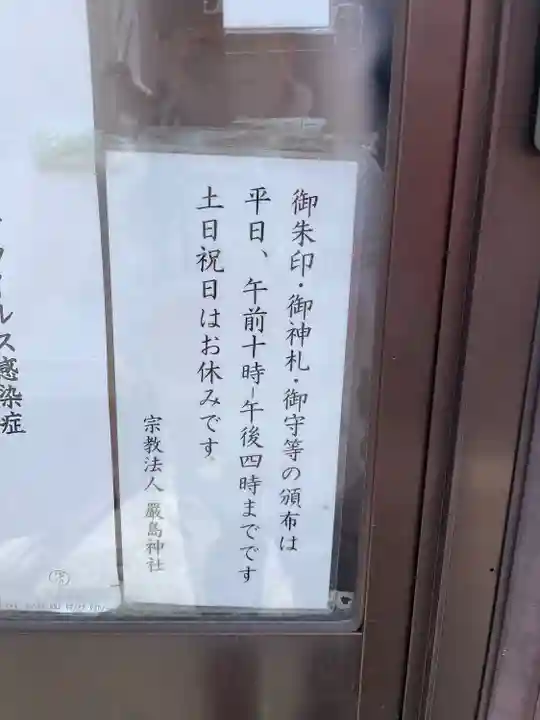 御朱印・御神札・御守等の頒布は
平日、午前十時-午後四時までです
土日祝日はお休みです
宗教法人 嚴島神社
イルス感染症